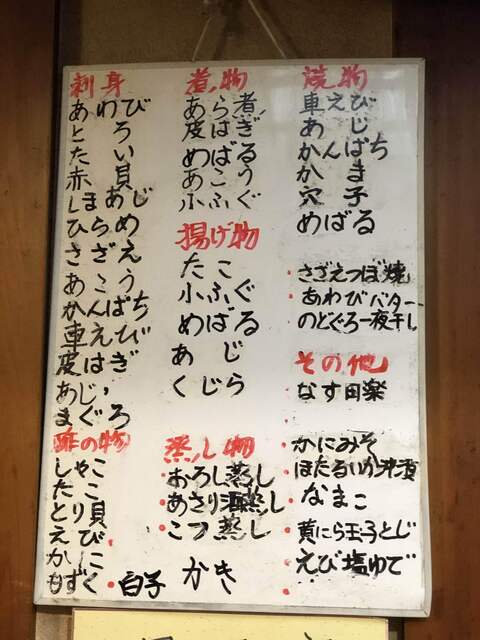 刺身
あわび
とろ
たい
赤貝
しまあじ
ひらめ
さざえ
あこう
かんぱち
車えび
皮はぎ
あじ
まぐろ
酢の物
しゃこ
たこ
とり貝
えび
かに
もずく
・白子
煮物
あら煮
皮はぎ
めばる
あこう
小ふぐ
揚げ物
たこ
小ふぐ
めばる
あじ
くじら
蒸し物
・おろし蒸し
・あさり酒蒸し
・こつ蒸し
かき
焼物
車えび
あじ
かんぱち
かま
穴子
めばる
・さざえつぼ焼
・あわびバター
・のどぐろ一夜干し
その他
なす田楽
・かにみそ
・ほたるいか沖漬
・なまこ
・黄にら玉子とじ
・えび塩ゆで